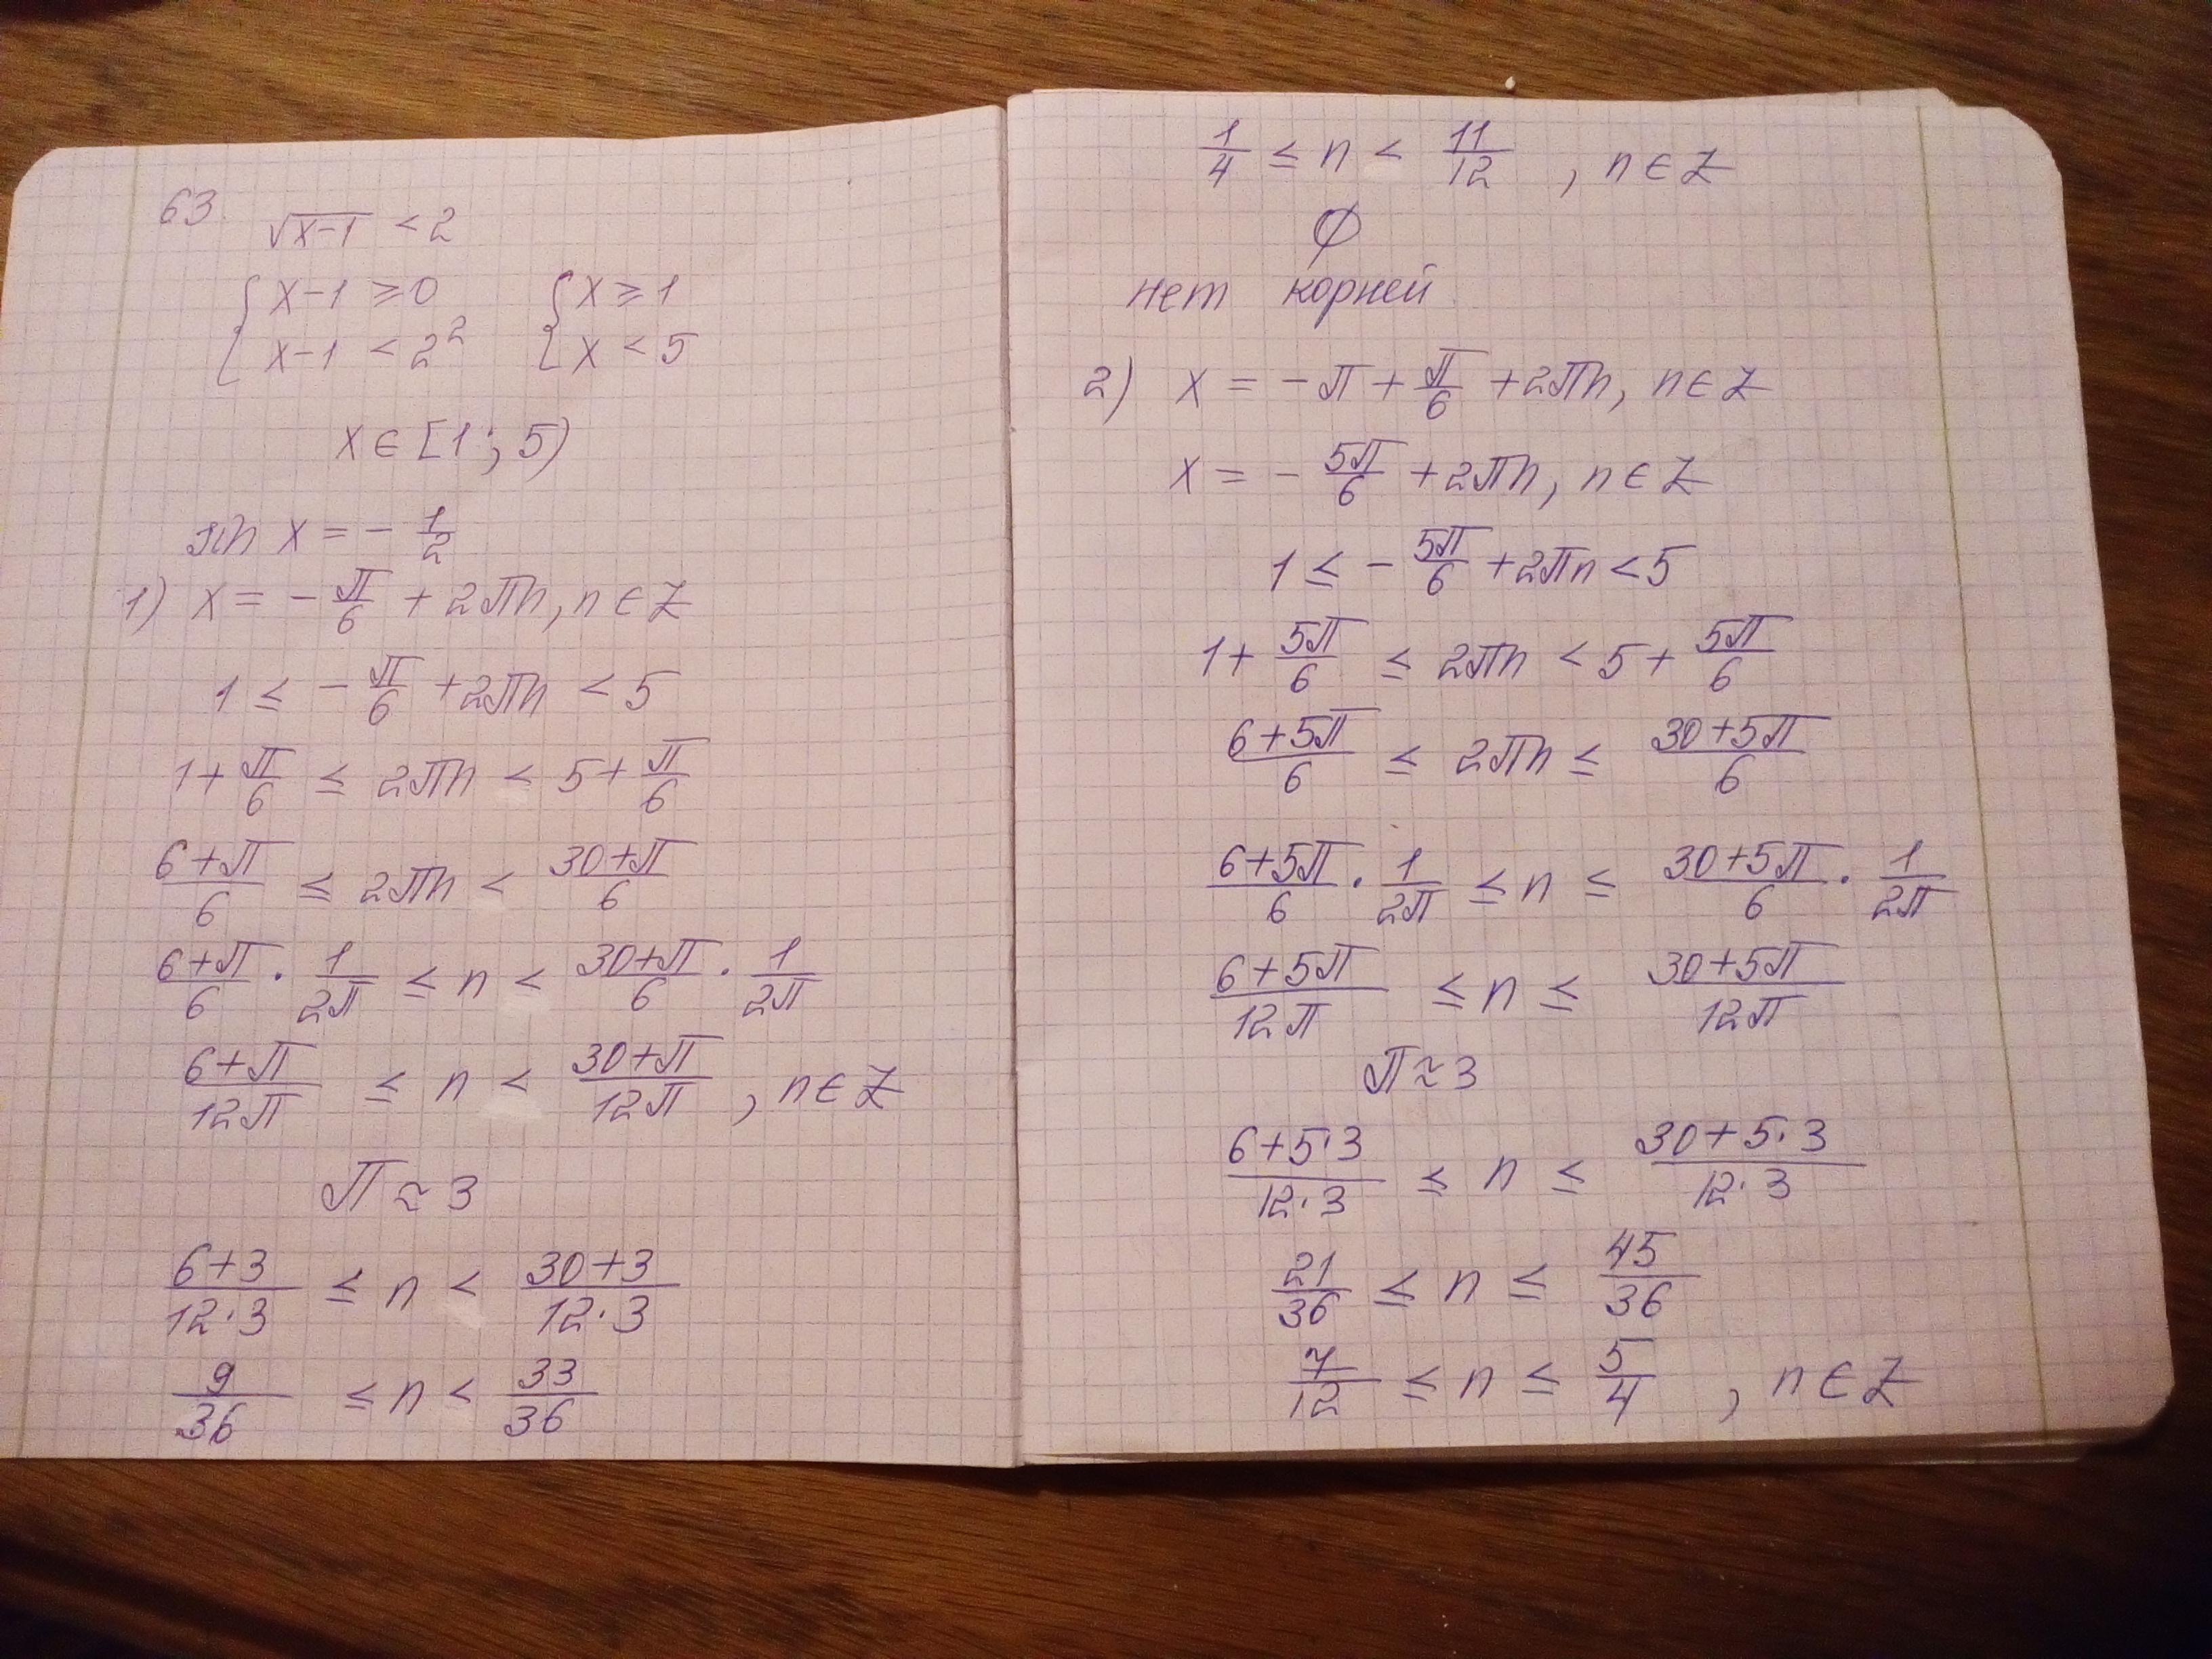 63.
√x-1 < 2
{ x-1 ≥ 0 { x ≥ 1
x-1 < 2² x < 5
x ∈ [1; 5)
sin x = - 1/2
1) x = - π/6 + 2πn, n ∈ Z
1 ≤ - π/6 + 2πn < 5
1 + π/6 ≤ 2πn < 5 + π/6
(6+π)/6 ≤ 2πn < (30+π)/6
(6+π)/6 · 1/2π ≤ n < (30+π)/6 · 1/2π
(6+π)/12π ≤ n < (30+π)/12π, n ∈ Z
π ≈ 3
(6+3)/(12·3) ≤ n < (30+3)/(12·3)
9/36 ≤ n < 33/36
1/4 ≤ n < 11/12, n ∈ Z
∅
нет корней
2) x = - π + π/6 + 2πn, n ∈ Z
x = - 5π/6 + 2πn, n ∈ Z
1 ≤ - 5π/6 + 2πn < 5
1 + 5π/6 ≤ 2πn < 5 + 5π/6
(6+5π)/6 ≤ 2πn ≤ (30+5π)/6
(6+5π)/6 · 1/2π ≤ n ≤ (30+5π)/6 · 1/2π
(6+5π)/12π ≤ n ≤ (30+5π)/12π
π ≈ 3
(6+5·3)/(12·3) ≤ n ≤ (30+5·3)/(12·3)
21/36 ≤ n ≤ 45/36
7/12 ≤ n ≤ 5/4, n ∈ Z